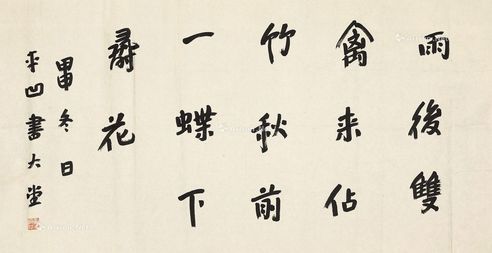 雨後雙
禽来佔
竹秋前
一蝶下
尋花
甲申冬日
平凹書大堂